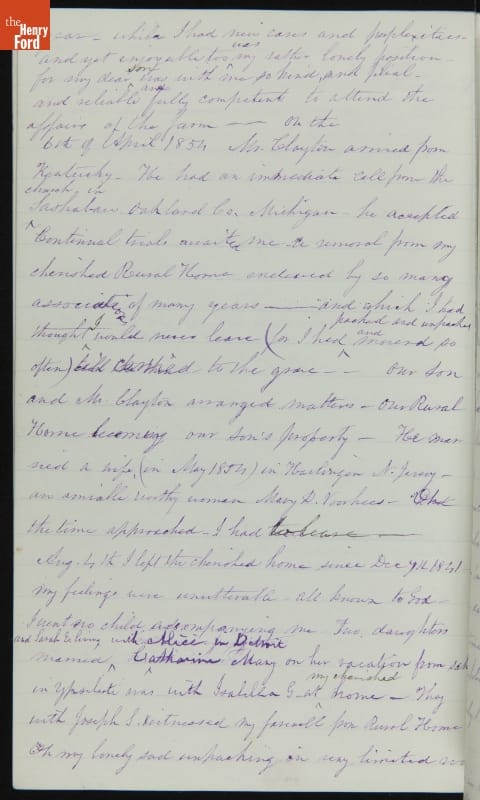 the
Henry
Ford
year - while I had new cares and perplexities -
and yet enjoyable too was my rather lonely position -
for my dear son was with me so kind, and filial -
and reliable and fully competent to attend the
affairs of the farm — On the
6th of April 1854 Mr. Clayton arrived from
Kentucky - He had an immediate call from the
church in
Sashabaw Oakland Co. Michigan - he accepted
Continual trials await me - a removal from my
cherished Rural Home endeared by so many
associations of many years — and which I had
thought I would never leave (for I had packed and unpacked and moved so
often) till carried to the grave - - Our son
and Mr. Clayton arranged matters - Our Rural
Home becoming our son's property - He mar
ried a wife, (in May 1854) in Harlingen N. Jersey -
an amiable worthy woman Mary D. Voorhees -
the time approached - I had to leave —
Aug. 4th I left the cherished home since Dec 9th 1841
my feelings were unutterable - all known to God -
I went no child accompanying me - Two daughters
and Sarah E. living with Alice in Detroit
married, Catharine Mary on her vacation from
in Ypsilanti was with Isabella G- at my cherished home - They
with Joseph S. witnessed my farewell from Rural Home
Oh my lonely sad unpacking in very limited